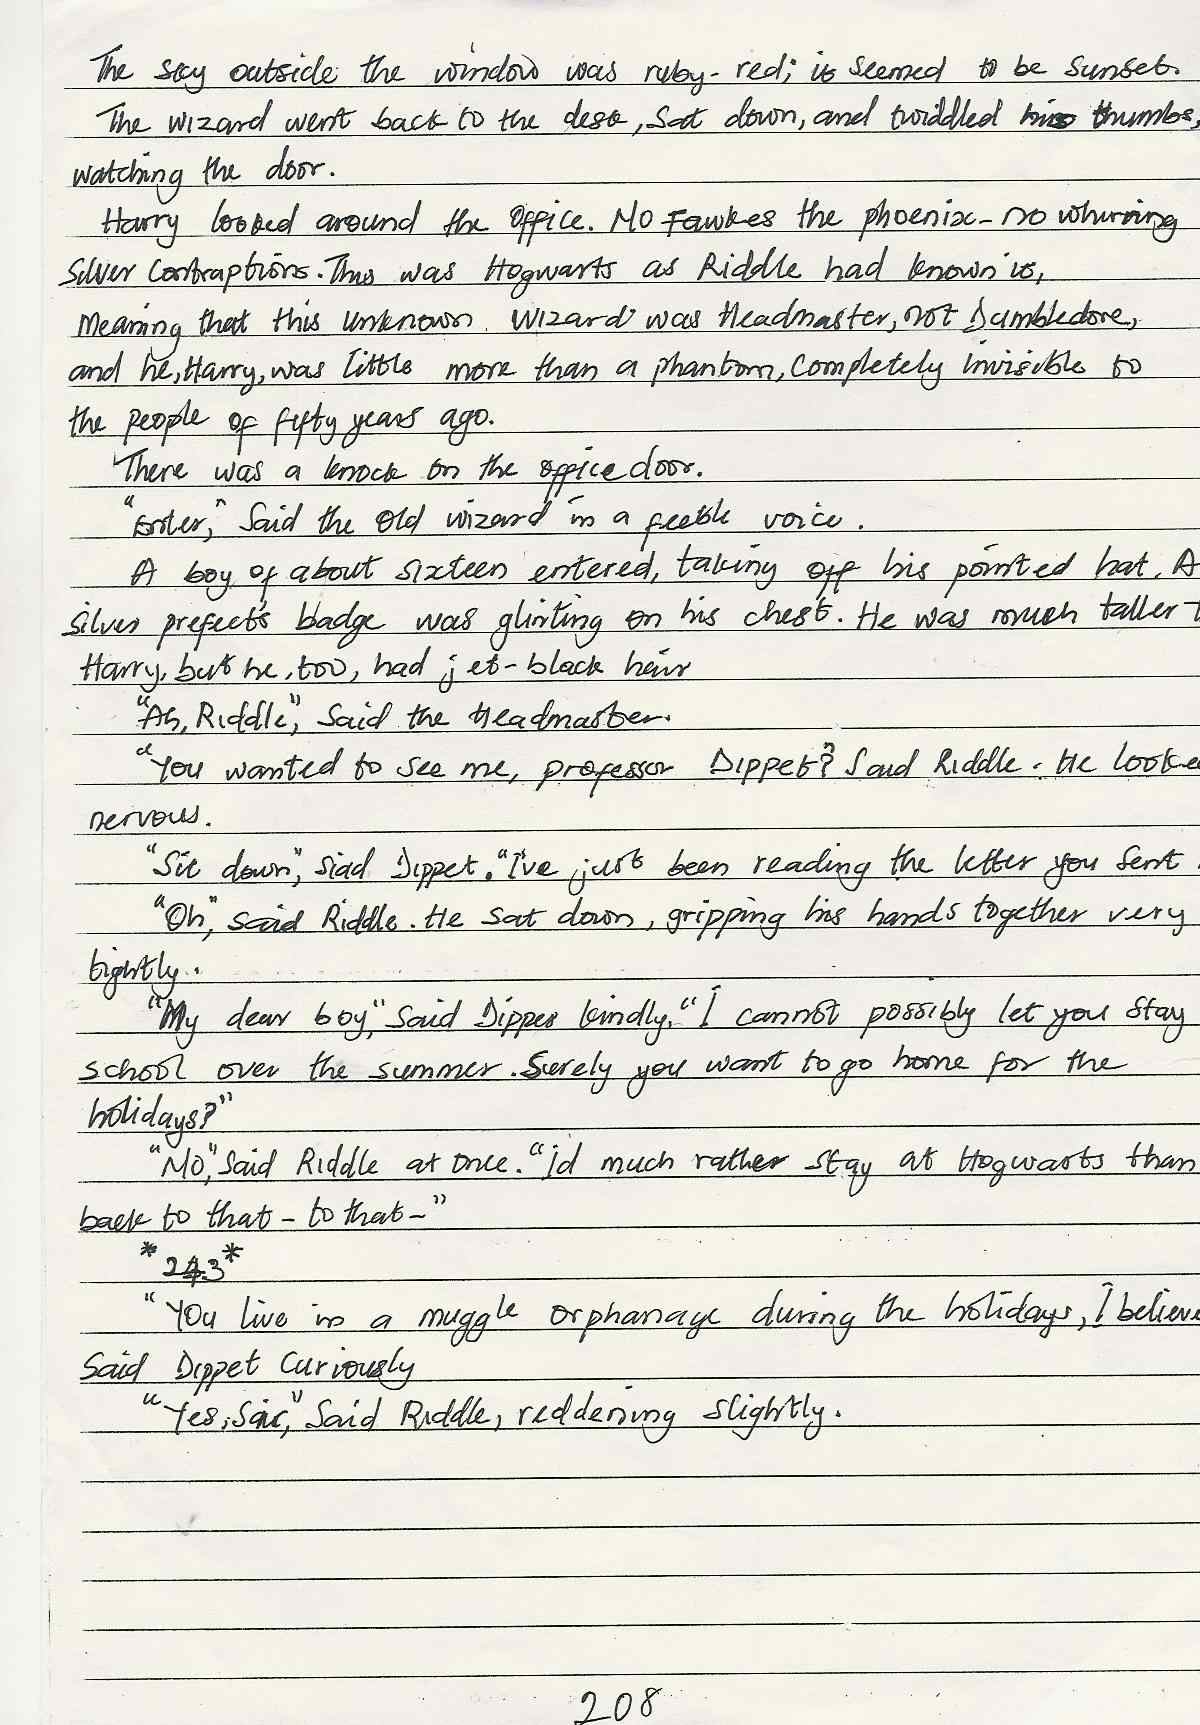 The sky outside the window was ruby-red; it seemed to be sunset.
The wizard went back to the desk, sat down, and twiddled his thumbs,
watching the door.
Harry looked around the office. No Fawkes the phoenix - no whirring
silver contraptions. This was Hogwarts as Riddle had known it,
meaning that this unknown wizard was Headmaster, not Dumbledore,
and he, Harry, was little more than a phantom, completely invisible to
the people of fifty years ago.
There was a knock on the office door.
"Enter," said the old wizard in a feeble voice.
A boy of about sixteen entered, taking off his pointed hat. A
silver prefect's badge was glinting on his chest. He was much taller t
Harry, but he, too, had jet-black hair
"Ah, Riddle", said the Headmaster.
"You wanted to see me, professor Dippet? Said Riddle. He looke
nervous.
"Sit down", siad Dippet. "I've just been reading the letter you sent
"Oh", said Riddle. He sat down, gripping his hands together very
tightly.
"My dear boy," said Dippet kindly, "I cannot possibly let you stay
school over the summer. Surely you want to go home for the
holidays?"
"No," said Riddle at once. "id much rather stay at Hogwarts than
back to that - to that -"
*243*
"You live in a muggle orphanage during the holidays, I believe
Said Dippet curiously
"Yes, Sair," said Riddle, reddening slightly.
208